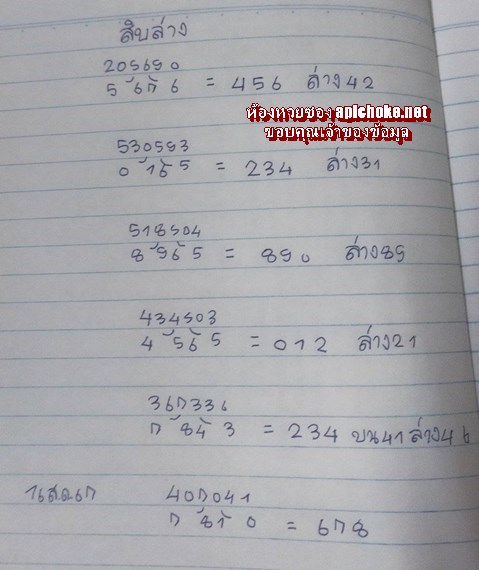 สิบล่าง
205690
5 676 = 456 ล่าง42
ห้องหวยซอง apichoke.net
ขอบคุณเจ้าของข้อมูล
530593
0 165 = 234 ล่าง31
518504
8 965 = 890 ล่าง89
434503
4 565 = 012 ล่าง21
367336
7 84 3 = 234 บน41 ล่าง46
407041
7 81 0 = 678